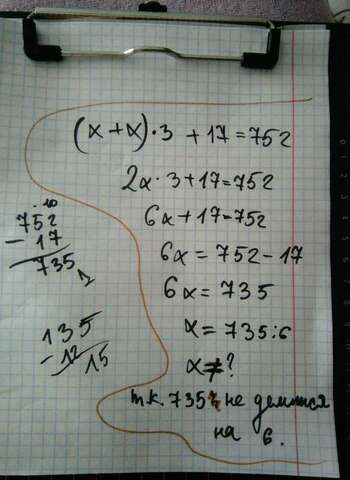 (x + x) · 3 + 17 = 752
2x · 3 + 17 = 752
6x + 17 = 752
6x = 752 - 17
6x = 735
x = 735 : 6
x ≠ ?
т.к. 735 не делится
на 6.
. 10
752
- 17
735
135
- 12
15